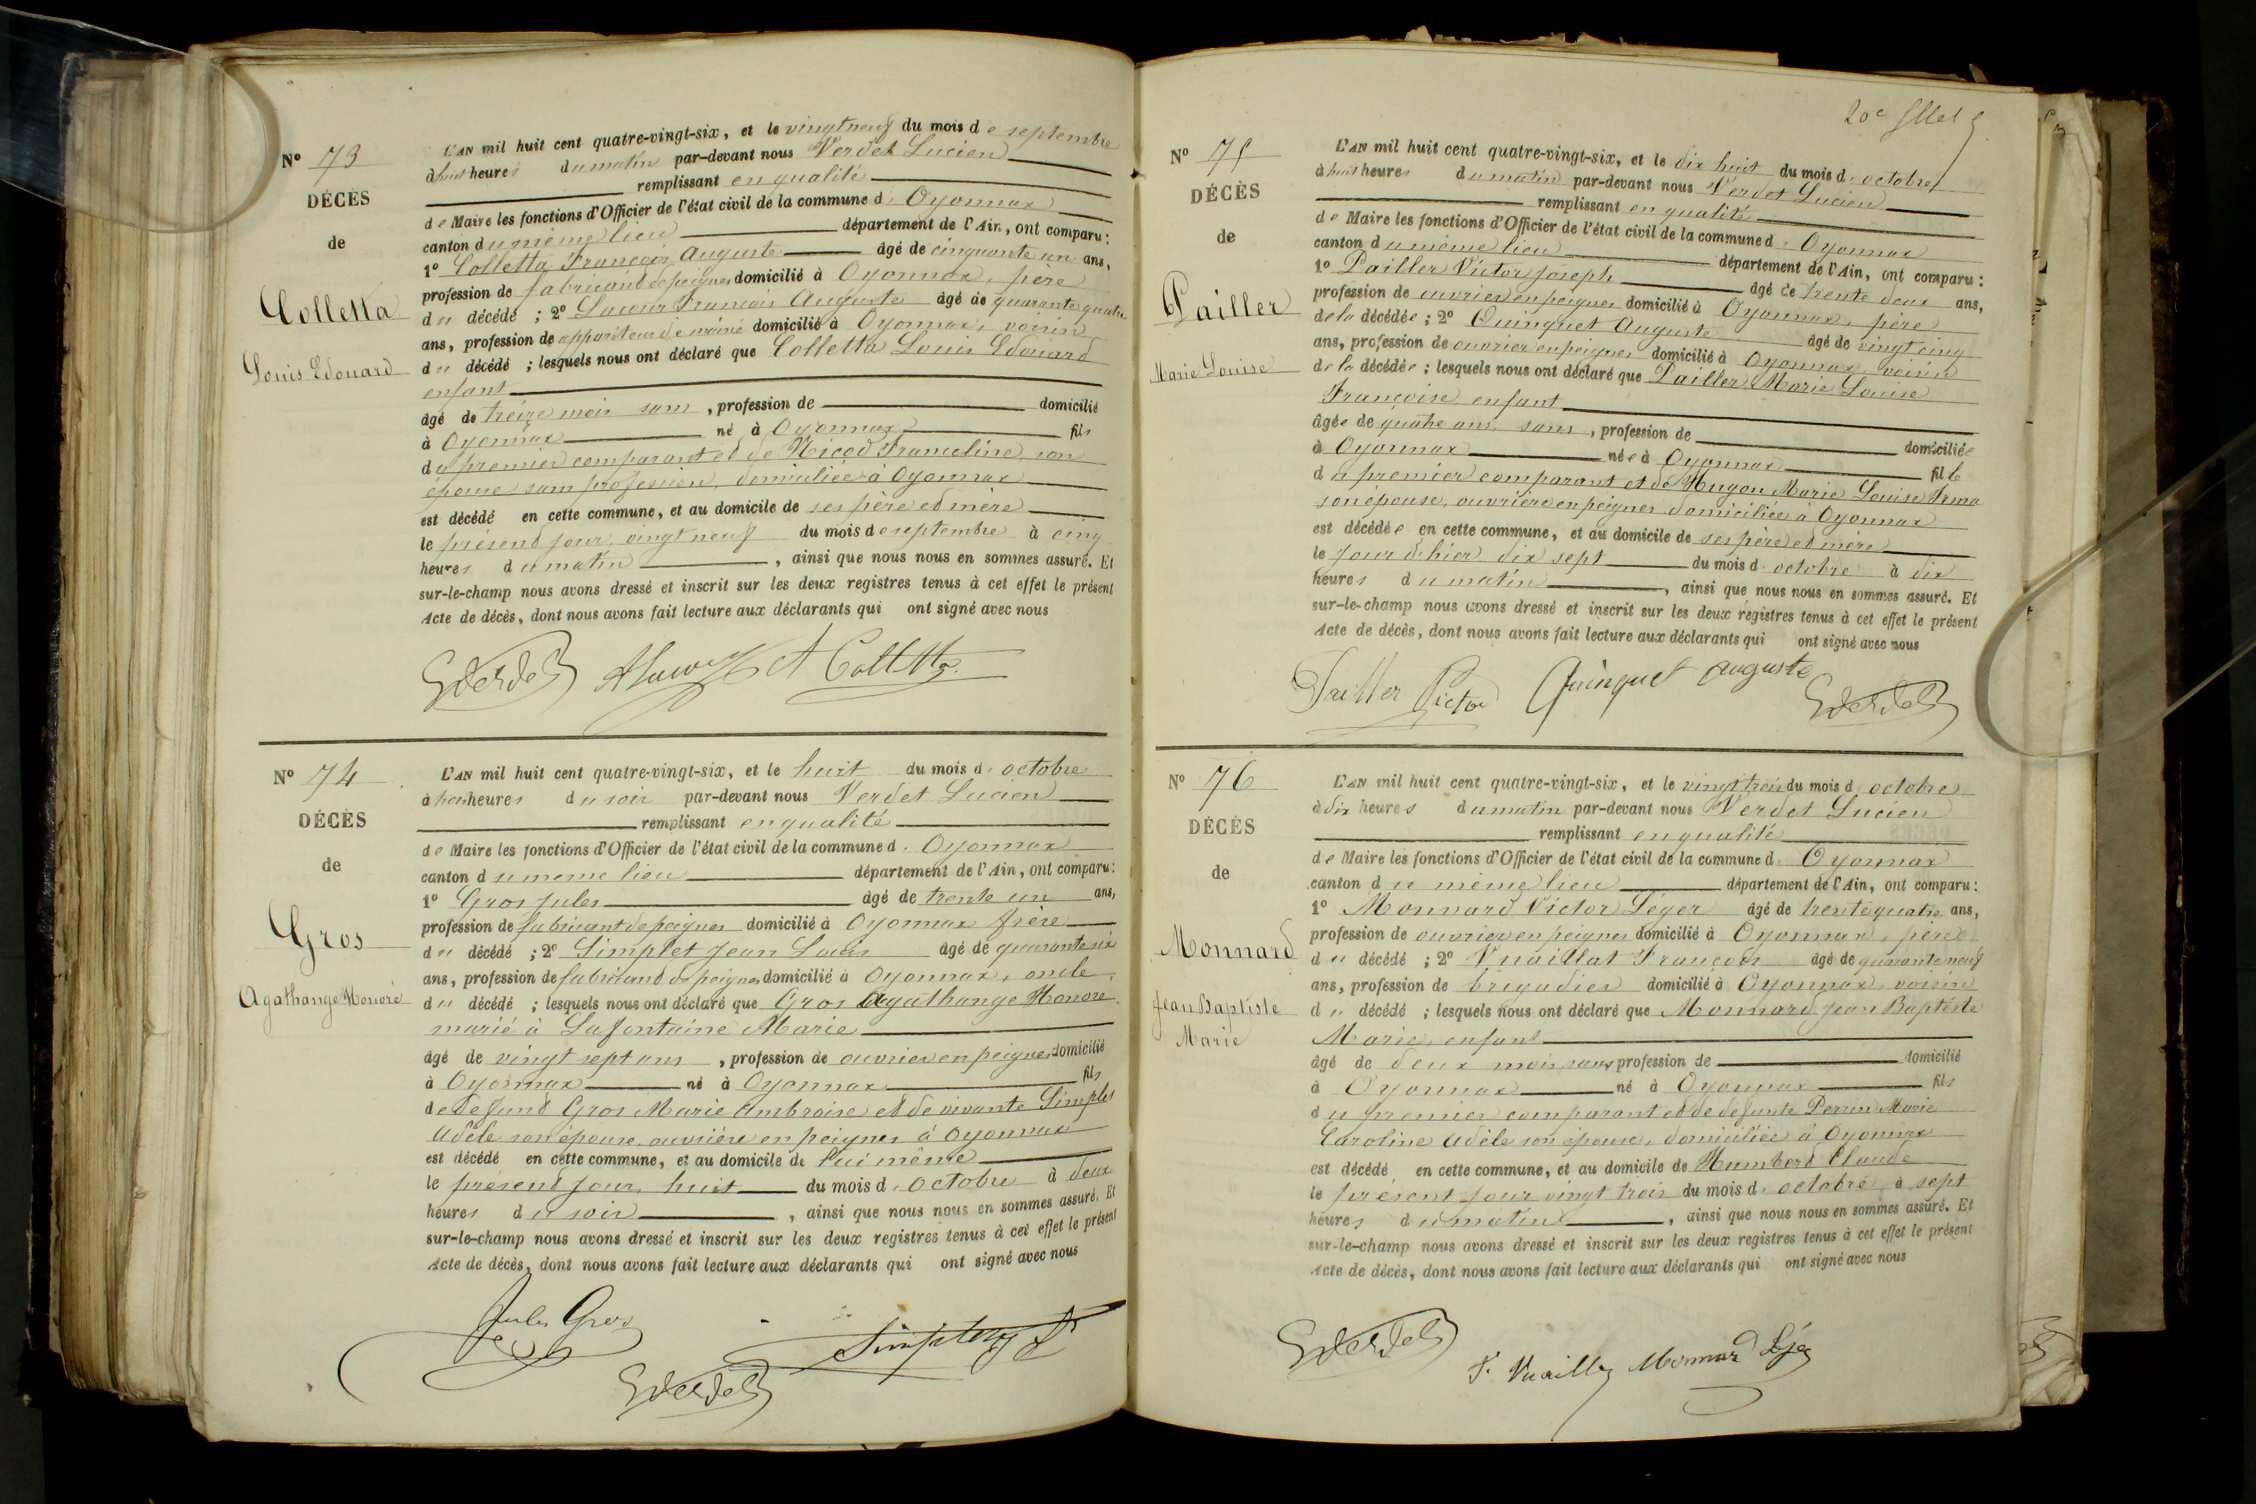 Nº 73
DÉCÈS
de
Colletta
Louis Edouard
L'AN mil huit cent quatre-vingt-six, et le vingt neuf du mois de septembre
à huit heures du matin par-devant nous Verdet Lucien
remplissant en qualité
de Maire les fonctions d'Officier de l'état civil de la commune d' Oyonnax
canton du même lieu département de l'Ain, ont comparu:
1º Colletta François Auguste âgé de cinquante un ans,
profession de fabricant de peignes domicilié à Oyonnax, père
du décédé ; 2º François Auguste âgé de quarante quatre
ans, profession de appariteur de mairie domicilié à Oyonnax, voisin
du décédé ; lesquels nous ont déclaré que Colletta Louis Edouard
enfant
âgé de treize mois sans, profession de domicilié
à Oyonnax né à Oyonnax fils
du premier comparant et de Nicod Franceline, son
épouse sans profession, domiciliée à Oyonnax
est décédé en cette commune, et au domicile de ses père et mère
le présent jour, vingt neuf du mois de septembre à cinq
heures du matin, ainsi que nous nous en sommes assuré. Et
sur-le-champ nous avons dressé et inscrit sur les deux registres tenus à cet effet le présent
Acte de décès, dont nous avons fait lecture aux déclarants qui ont signé avec nous
Verdet A Colletta
Nº 74
DÉCÈS
de
Gros
Agathange Honoré
L'AN mil huit cent quatre-vingt-six, et le huit du mois d' octobre
à heures du soir par-devant nous Verdet Lucien
remplissant en qualité
de Maire les fonctions d'Officier de l'état civil de la commune d' Oyonnax
canton du même lieu département de l'Ain, ont comparu:
1º Gros Jules âgé de trente un ans,
profession de fabricant de peignes domicilié à Oyonnax frère
du décédé ; 2º Simplet Jean Louis âgé de quarante six
ans, profession de fabricant de peignes domicilié à Oyonnax, oncle
du décédé ; lesquels nous ont déclaré que Gros Agathange Honoré
marié à Lafontaine Marie
âgé de vingt sept ans, profession de ouvrier en peignes domicilié
à Oyonnax né à Oyonnax fils
de défunt Gros Marie Ambroise et de vivante Simplet
Adèle son épouse, ouvrière en peignes à Oyonnax
est décédé en cette commune, et au domicile de lui même
le présent jour, huit du mois d' octobre à deux
heures du soir, ainsi que nous nous en sommes assuré. Et
sur-le-champ nous avons dressé et inscrit sur les deux registres tenus à cet effet le présent
Acte de décès, dont nous avons fait lecture aux déclarants qui ont signé avec nous
Jules Gros
Verdet
Nº 75
DÉCÈS
de
Pailler
Marie Louise
L'AN mil huit cent quatre-vingt-six, et le dix huit du mois d' octobre
à huit heures du matin par-devant nous Verdet Lucien
remplissant en qualité
de Maire les fonctions d'Officier de l'état civil de la commune d' Oyonnax
canton du même lieu département de l'Ain, ont comparu:
1º Pailler Victor Joseph âgé de trente deux ans,
profession de ouvrier en peignes domicilié à Oyonnax, père
de la décédée ; 2º Quinquet Auguste âgé de vingt cinq
ans, profession de ouvrier en peignes domicilié à Oyonnax, voisin
de la décédée ; lesquels nous ont déclaré que Pailler Marie Louise
Françoise enfant
âgée de quatre ans, sans, profession de domiciliée
à Oyonnax née à Oyonnax fille
du premier comparant et de Hugon Marie Louise Irma
son épouse, ouvrière en peignes domiciliée à Oyonnax
est décédée en cette commune, et au domicile de ses père et mère
le jour d'hier dix sept du mois d' octobre à dix
heures du matin, ainsi que nous nous en sommes assuré. Et
sur-le-champ nous avons dressé et inscrit sur les deux registres tenus à cet effet le présent
Acte de décès, dont nous avons fait lecture aux déclarants qui ont signé avec nous
Pailler Victor Quinquet Auguste Verdet
Nº 76
DÉCÈS
de
Monnard
Jean Baptiste
Marie
L'AN mil huit cent quatre-vingt-six, et le vingt trois du mois d' octobre
à dix heures du matin par-devant nous Verdet Lucien
remplissant en qualité
de Maire les fonctions d'Officier de l'état civil de la commune d' Oyonnax
canton du même lieu département de l'Ain, ont comparu:
1º Monnard Victor Léger âgé de trente quatre ans,
profession de ouvrier en peignes domicilié à Oyonnax, père
du décédé ; 2º Vuaillat François âgé de quarante neuf
ans, profession de brigadier domicilié à Oyonnax, voisin
du décédé ; lesquels nous ont déclaré que Monnard Jean Baptiste
Marie, enfant
âgé de deux mois, sans profession de domicilié
à Oyonnax né à Oyonnax fils
du premier comparant et de défunte Perrin Marie
Caroline Adèle son épouse, domiciliée à Oyonnax
est décédé en cette commune, et au domicile de Humbert Claude
le présent jour vingt trois du mois d' octobre, à sept
heures du matin, ainsi que nous nous en sommes assuré. Et
sur-le-champ nous avons dressé et inscrit sur les deux registres tenus à cet effet le présent
Acte de décès, dont nous avons fait lecture aux déclarants qui ont signé avec nous
Verdet
Monnard